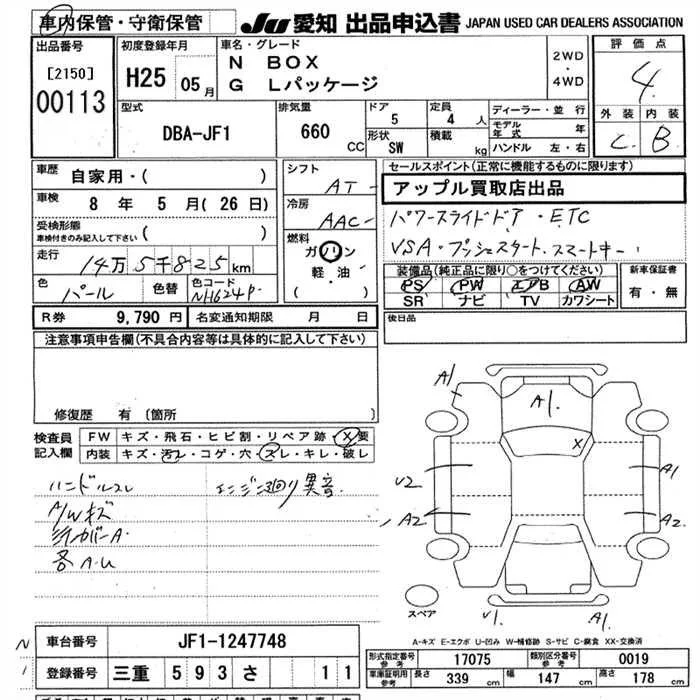 車内保管・守衛保管
JU 愛知 出品申込書 JAPAN USED CAR DEALERS ASSOCIATION
出品番号
[2150]
00113
初度登録年月
H25 05月
車名・グレード
N BOX
G Lパッケージ
2WD
・
4WD
評価点
4
外装 内装
C B
型式
DBA-JF1
排気量
660 CC
ドア
5
定員
4 人
形状
SW
積載
kg
ディーラー・並行
モデル年式 年
ハンドル 左・右
車歴
自家用・( )
車検
8 年 5 月( 26 日)
受検形態
車検付きのみ記入して下さい ( )
走行
14万5千825km
色
パール
色替
色コード
NH624P
シフト
AT
冷房
AAC
燃料
ガソリン
軽・油
( )
セールスポイント(正常に機能するものに限ります)
アップル買取店出品
パワースライドドア・ETC
VSA・プッシュスタート・スマートキー
装備品(純正品に限り○をつけてください)
PS PW エアB AW
SR ナビ TV カワシート
新車保証書
有・無
R券 9,790 円 名変通知期限 月 日
後日品
注意事項申告欄(不具合内容等は具体的に記入して下さい)
修復歴 有 〔箇所
検査員記入欄
FW キズ・飛石・ヒビ割・リペア跡・X要
内装 キズ・汚レ・コゲ・穴・スレ・キレ・破レ
ハンドルスレ
エンジン廻り異音
A/Wキズ
ミラーカバーA
各A・U
A1
A1
X
U2
A1
A2
A2
U1
A1
スペア
A-キズ E-エクボ U-凹み W-補修跡 S-サビ C-腐食 XX-交換済
車台番号 JF1-1247748
登録番号 三重 593 さ 11
形式指定番号 参考 17075
類別区分番号 参考 0019
車庫証明用 参考 長さ 339 cm 幅 147 cm 高さ 178 cm